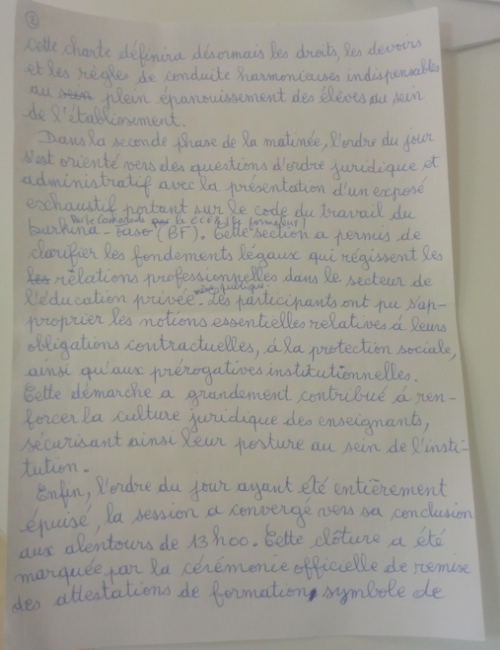 2
Cette charte définira désormais les droits, les devoirs
et les règles de conduite harmonieuses indispensables
au sein plein épanouissement des élèves au sein
de l'établissement.
Dans la seconde phase de la matinée, l'ordre du jour
s'est orienté vers des questions d'ordre juridique et
administratif avec la présentation d'un exposé
exhaustif portant sur le code du travail du
par le
Burkina-Faso (BF). Cette section a permis de
clarifier les fondements légaux qui régissent les
les relations professionnelles dans le secteur de
l'éducation privée. Les participants ont pu s'ap-
proprier les notions essentielles relatives à leurs
obligations contractuelles, à la protection sociale,
ainsi qu'aux prérogatives institutionnelles.
Cette démarche a grandement contribué à ren-
forcer la culture juridique des enseignants,
sécurisant ainsi leur posture au sein de l'insti-
tution.
Enfin, l'ordre du jour ayant été entièrement
épuisé, la session a convergé vers sa conclusion
aux alentours de 13h00. Cette clôture a été
marquée par la cérémonie officielle de remise
des attestations de formation, symbole de